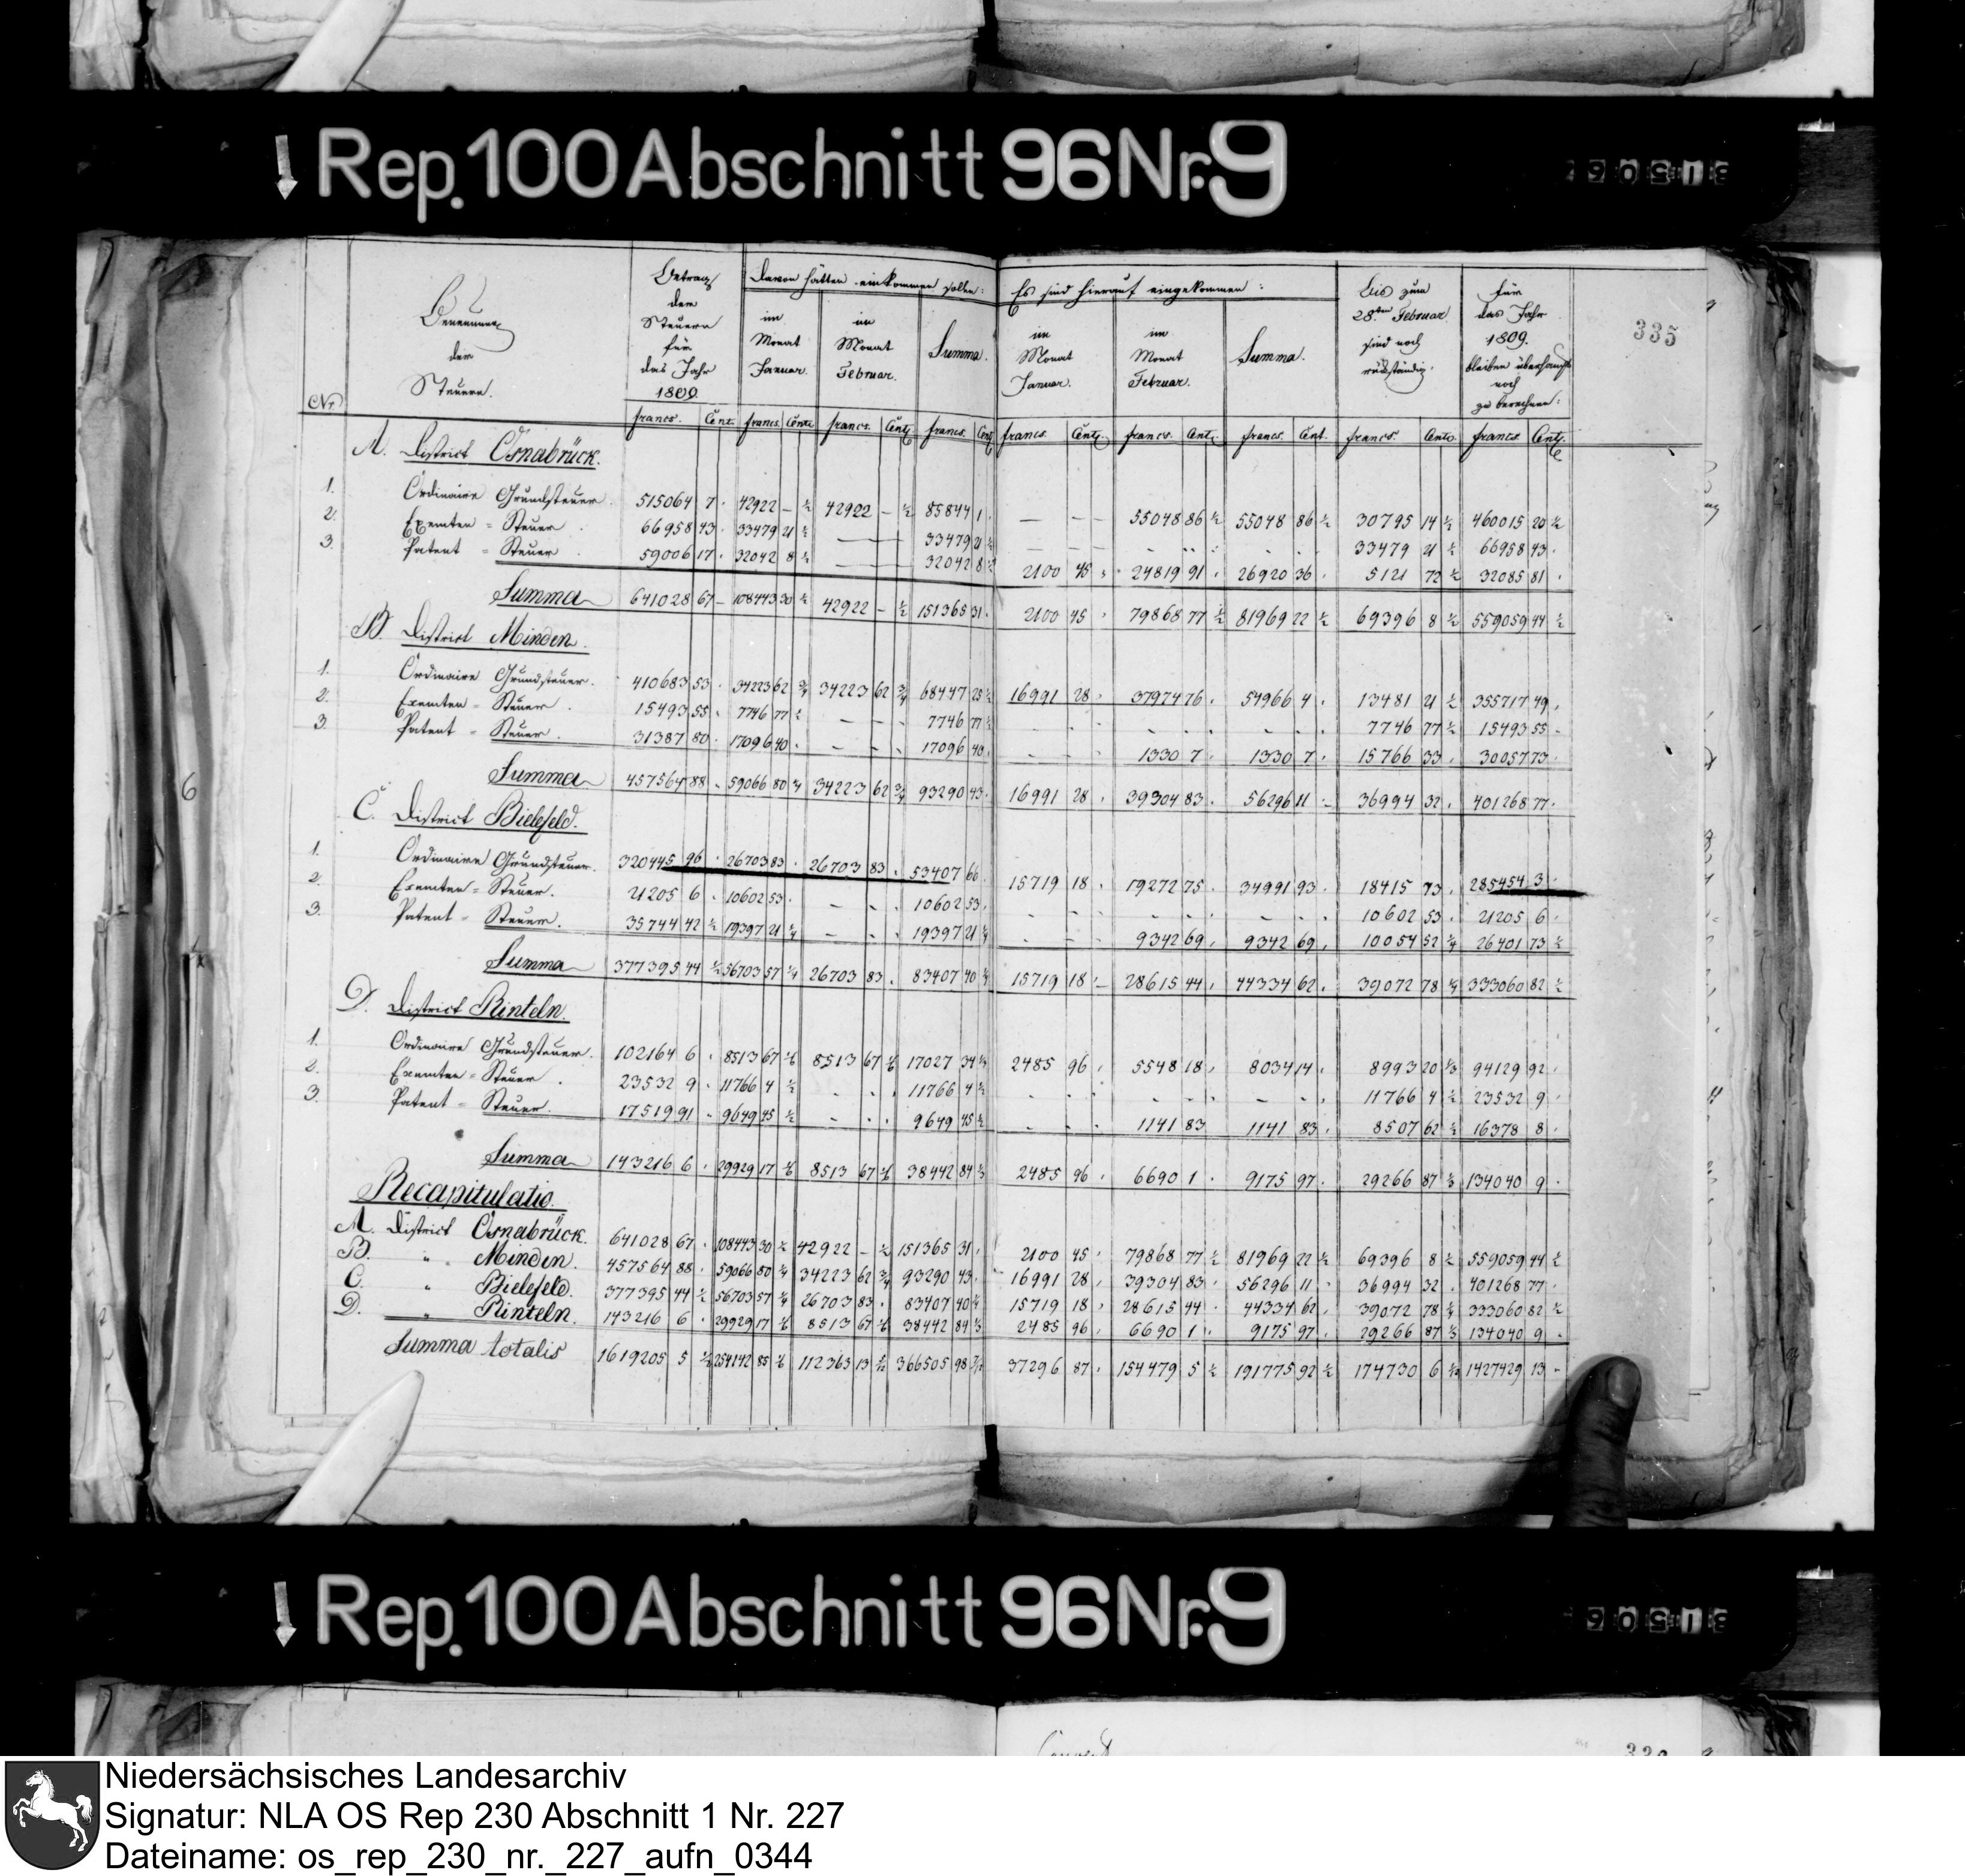 Rep. 100 Abschnitt 96 Nr. 9
335
Nr.
Benennung der Steuern.
Betrag der Steuern für das Jahr 1809.
Davon hätten einkommen sollen:
im Monat Januar.
im Monat Februar.
Summa.
Es sind hierauf eingekommen:
im Monat Januar.
im Monat Februar.
Summa.
Bis zum 28ten Februar sind noch rückständig.
für das Jahr 1809. bleiben überhaupt noch zu berechnen:
francs. Cent. francs. Cent. francs. Cent. francs. Cent. francs. Cent. francs. Cent. francs. Cent. francs. Cent. francs. Cent.
A. District Osnabrück.
1. Ordinaire Grundsteuer. 515064 7 . 42922 – ½ 42922 – ½ 85844 1 . — – – 55048 86 ½ 55048 86 ½ 30795 14 ½ 460015 20 ½
2. Exemten = Steuer . 66958 43 . 33479 21 ½ — — 33479 21 ½ 33479 21 ½ 66958 43 .
3. Patent = Steuer . 59006 17 . 32042 8 ½ — — 32042 8 ½ 2100 45 . 24819 91 . 26920 36 . 5121 72 ½ 32085 81 .
Summa 641028 67 – 108443 30 ½ 42922 – ½ 151365 31 . 2100 45 . 79868 77 ½ 81969 22 ½ 69396 8 ½ 559059 44 ½
B. District Minden.
1. Ordinaire Grundsteuer. 410683 53 . 34223 62 ¾ 34223 62 ¾ 68447 25 ½ 16991 28 . 37974 76 . 54966 4 . 13481 21 ½ 355717 49 .
2. Exemten = Steuer . 15493 55 . 7746 77 ½ – – 7746 77 ½ 7746 77 ½ 15493 55 .
3. Patent = Steuer . 31387 80 . 17096 40 . – – . 17096 40 . 1330 7 . 1330 7 . 15766 33 . 30057 73 .
Summa 457564 88 . 59066 80 ¼ 34223 62 ¾ 93290 43 . 16991 28 . 39304 83 . 56296 11 – 36994 32 . 401268 77 .
C. District Bielefeld.
1. Ordinaire Grundsteuer. 320445 96 . 26703 83 . 26703 83 . 53407 66 . 15719 18 . 19272 75 . 34991 93 . 18415 73 . 285454 3 .
2. Exemten = Steuer. 21205 6 . 10602 53 . – – . 10602 53 . 10602 53 . 21205 6 .
3. Patent = Steuer . 35744 42 ½ 19397 21 ¼ – – . 19397 21 ¼ 9342 69 . 9342 69 . 10054 52 ¼ 26401 73 ½
Summa 377395 44 ½ 56703 57 ¼ 26703 83 . 83407 40 ¼ 15719 18 – 28615 44 . 44334 62 . 39072 78 ¼ 333060 82 ½
D. District Rinteln.
1. Ordinaire Grundsteuer. 102164 6 . 8513 67 ⅙ 8513 67 ⅙ 17027 34 ⅓ 2485 96 . 5548 18 . 8034 14 . 8993 20 ⅓ 94129 92 .
2. Exemten = Steuer . 23532 9 . 11766 4 ½ 11766 4 ½ 11766 4 ½ 23532 9 .
3. Patent = Steuer. 17519 91 . 9649 45 ½ – . . 9649 45 ½ 1141 83 1141 83 . 8507 62 ½ 16378 8 .
Summa 143216 6 . 29929 17 ⅙ 8513 67 ⅙ 38442 84 ⅓ 2485 96 . 6690 1 . 9175 97 . 29266 87 ⅓ 134040 9 .
Recapitulatio.
A. District Osnabrück. 641028 67 . 108443 30 ½ 42922 – ½ 151365 31 . 2100 45 . 79868 77 ½ 81969 22 ½ 69396 8 ½ 559059 44 ½
B. " Minden. 457564 88 . 59066 80 ¼ 34223 62 ¾ 93290 43 . 16991 28 . 39304 83 . 56296 11 36994 32 . 401268 77 .
C. " Bielefeld. 377395 44 ½ 56703 57 ¼ 26703 83 . 83407 40 ¼ 15719 18 . 28615 44 . 44334 62 . 39072 78 ¼ 333060 82 ½
D. " Rinteln. 143216 6 . 29929 17 ⅙ 8513 67 ⅙ 38442 84 ⅓ 2485 96 . 6690 1 . 9175 97 . 29266 87 ⅓ 134040 9 .
Summa totalis 1619205 5 ½ 254142 85 ⅙ 112363 13 5/12 366505 98 7/12 37296 87 . 154479 5 ½ 191775 92 ½ 174730 6 1/12 1427429 13 –
6
Rep. 100 Abschnitt 96 Nr. 9
Niedersächsisches Landesarchiv
Signatur: NLA OS Rep 230 Abschnitt 1 Nr. 227
Dateiname: os_rep_230_nr._227_aufn_0344